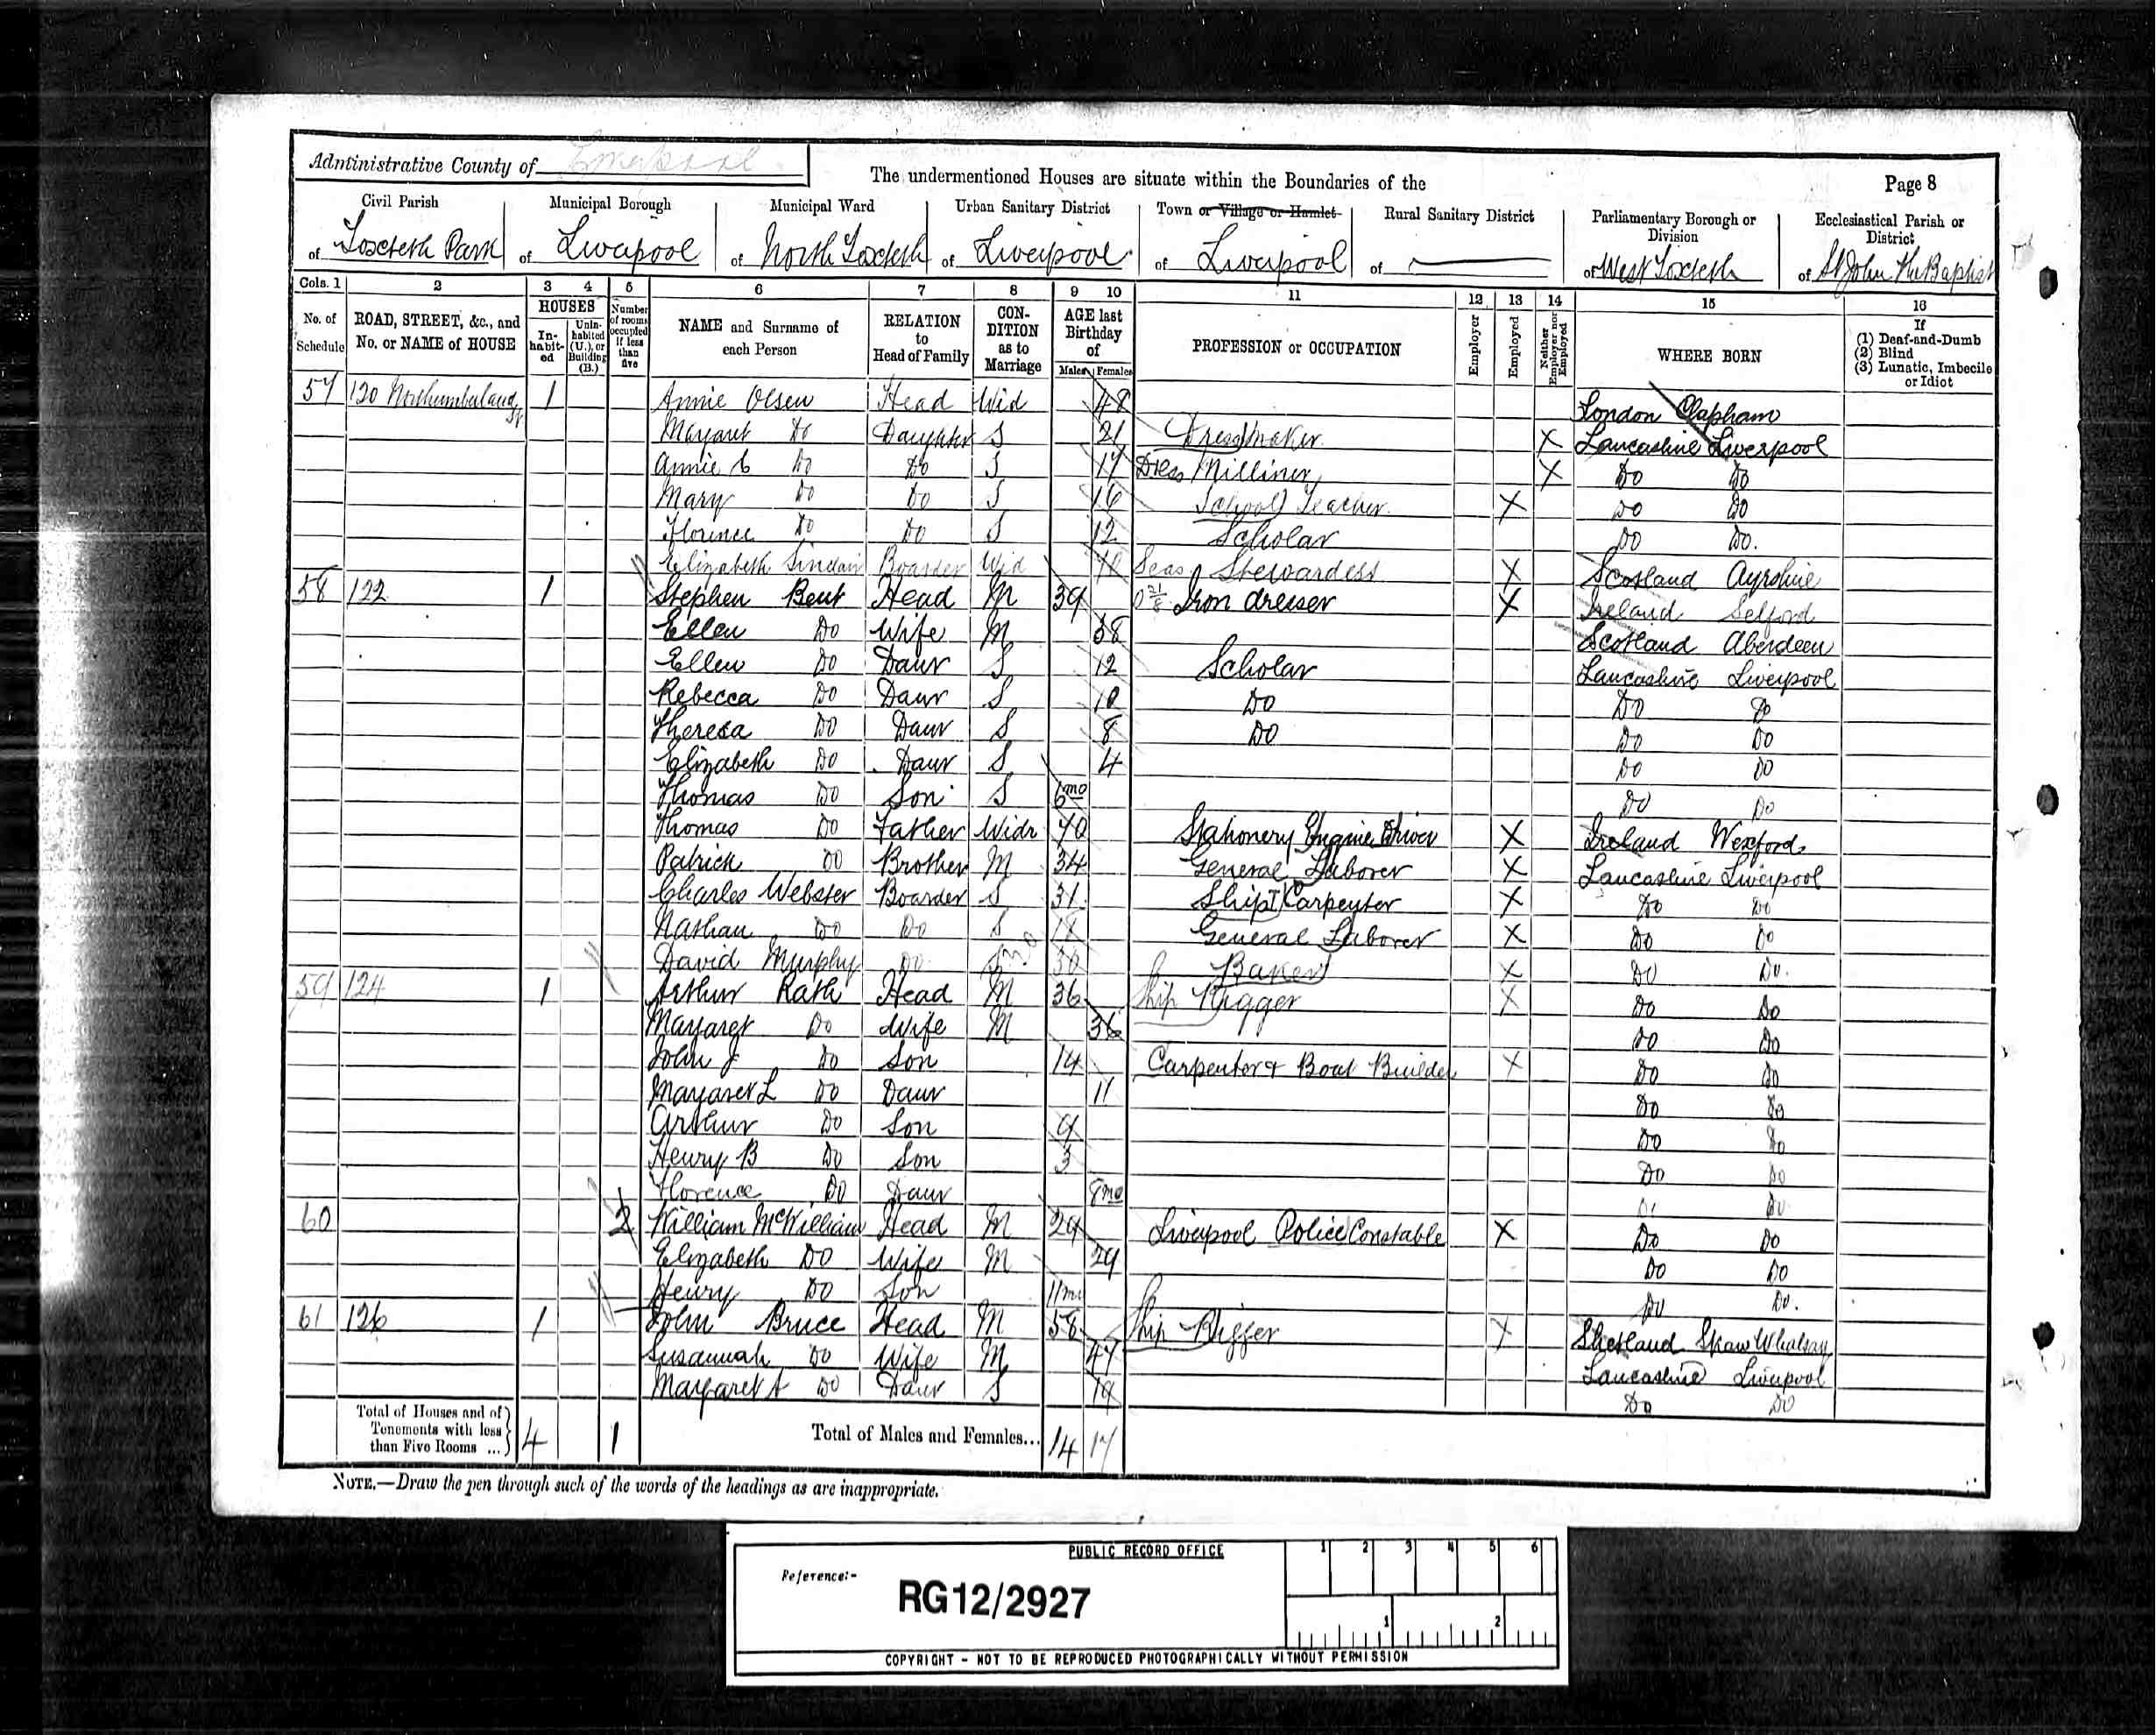 Administrative County of Liverpool
The undermentioned Houses are situate within the Boundaries of the
Page 8
Civil Parish of Toxteth Park
Municipal Borough of Liverpool
Municipal Ward of North Toxteth
Urban Sanitary District of Liverpool
Town or Village or Hamlet of Liverpool
Rural Sanitary District of
Parliamentary Borough or Division of West Toxteth
Ecclesiastical Parish or District of St John the Baptist
Cols. 1 2 3 4 5 6 7 8 9 10 11 12 13 14 15 16
No. of Schedule
ROAD, STREET, &c., and No. or NAME of HOUSE
HOUSES
In-habit-ed
Unin-habited (U.), or Building (B.)
Number of rooms occupied if less than five
NAME and Surname of each Person
RELATION to Head of Family
CON-DITION as to Marriage
AGE last Birthday of
Males Females
PROFESSION or OCCUPATION
Employer
Employed
Neither Employer nor Employed
WHERE BORN
If
(1) Deaf-and-Dumb
(2) Blind
(3) Lunatic, Imbecile or Idiot
57 120 Northumberland St 1 Annie Olsen Head Wid 48 London Clapham
Margaret Do Daughter S 21 Dressmaker X Lancashire Liverpool
Annie C Do Do S 17 Dress Milliner X Do Do
Mary Do Do S 16 School Teacher X Do Do
Florence Do Do S 12 Scholar Do Do.
Elizabeth Sinclair Boarder Wid Seas Stewardess X Scotland Ayrshire
58 122 1 Stephen Bent Head M 39 Iron dresser X Ireland
Ellen Do Wife M 38 Scotland Aberdeen
Ellen Do Daur S 12 Scholar Lancashire Liverpool
Rebecca Do Daur S 10 Do Do Do
Theresa Do Daur S 8 Do Do Do
Elizabeth Do Daur S 4 Do Do
Thomas Do Son S 6mo Do Do
Thomas Do Father Widr 70 Stationery Engine Driver X Ireland Wexford
Patrick Do Brother M 34 General Laborer X Lancashire Liverpool
Charles Webster Boarder S 31 Ship Carpenter X Do Do
Nathan Do Do S 18 General Laborer X Do Do
David Murphy Do 30 Baker X Do Do.
59 124 1 Arthur Rath Head M 36 Ship Rigger X Do Do
Margaret Do Wife M 36 Do Do
John J Do Son 14 Carpenter & Boat Builder X Do Do
Margaret L Do Daur 11 Do Do
Arthur Do Son 9 Do Do
Henry B Do Son 3 Do Do
Florence Do Daur 8mo Do Do
60 2 William McWilliam Head M 29 Liverpool Police Constable X Do Do
Elizabeth Do Wife M 29 Do Do
Henry Do Son 11mo Do Do.
61 126 1 John Bruce Head M 58 Ship Rigger X Shetland Skaw Whalsay
Susannah Do Wife M 47 Lancashire Liverpool
Margaret A Do Daur S 19 Do Do
Total of Houses and of Tenements with less than Five Rooms ... 4 1
Total of Males and Females... 14 17
NOTE.—Draw the pen through such of the words of the headings as are inappropriate.
PUBLIC RECORD OFFICE
1 2 3 4 5 6
Reference:-
RG12/2927
1 2
COPYRIGHT - NOT TO BE REPRODUCED PHOTOGRAPHICALLY WITHOUT PERMISSION